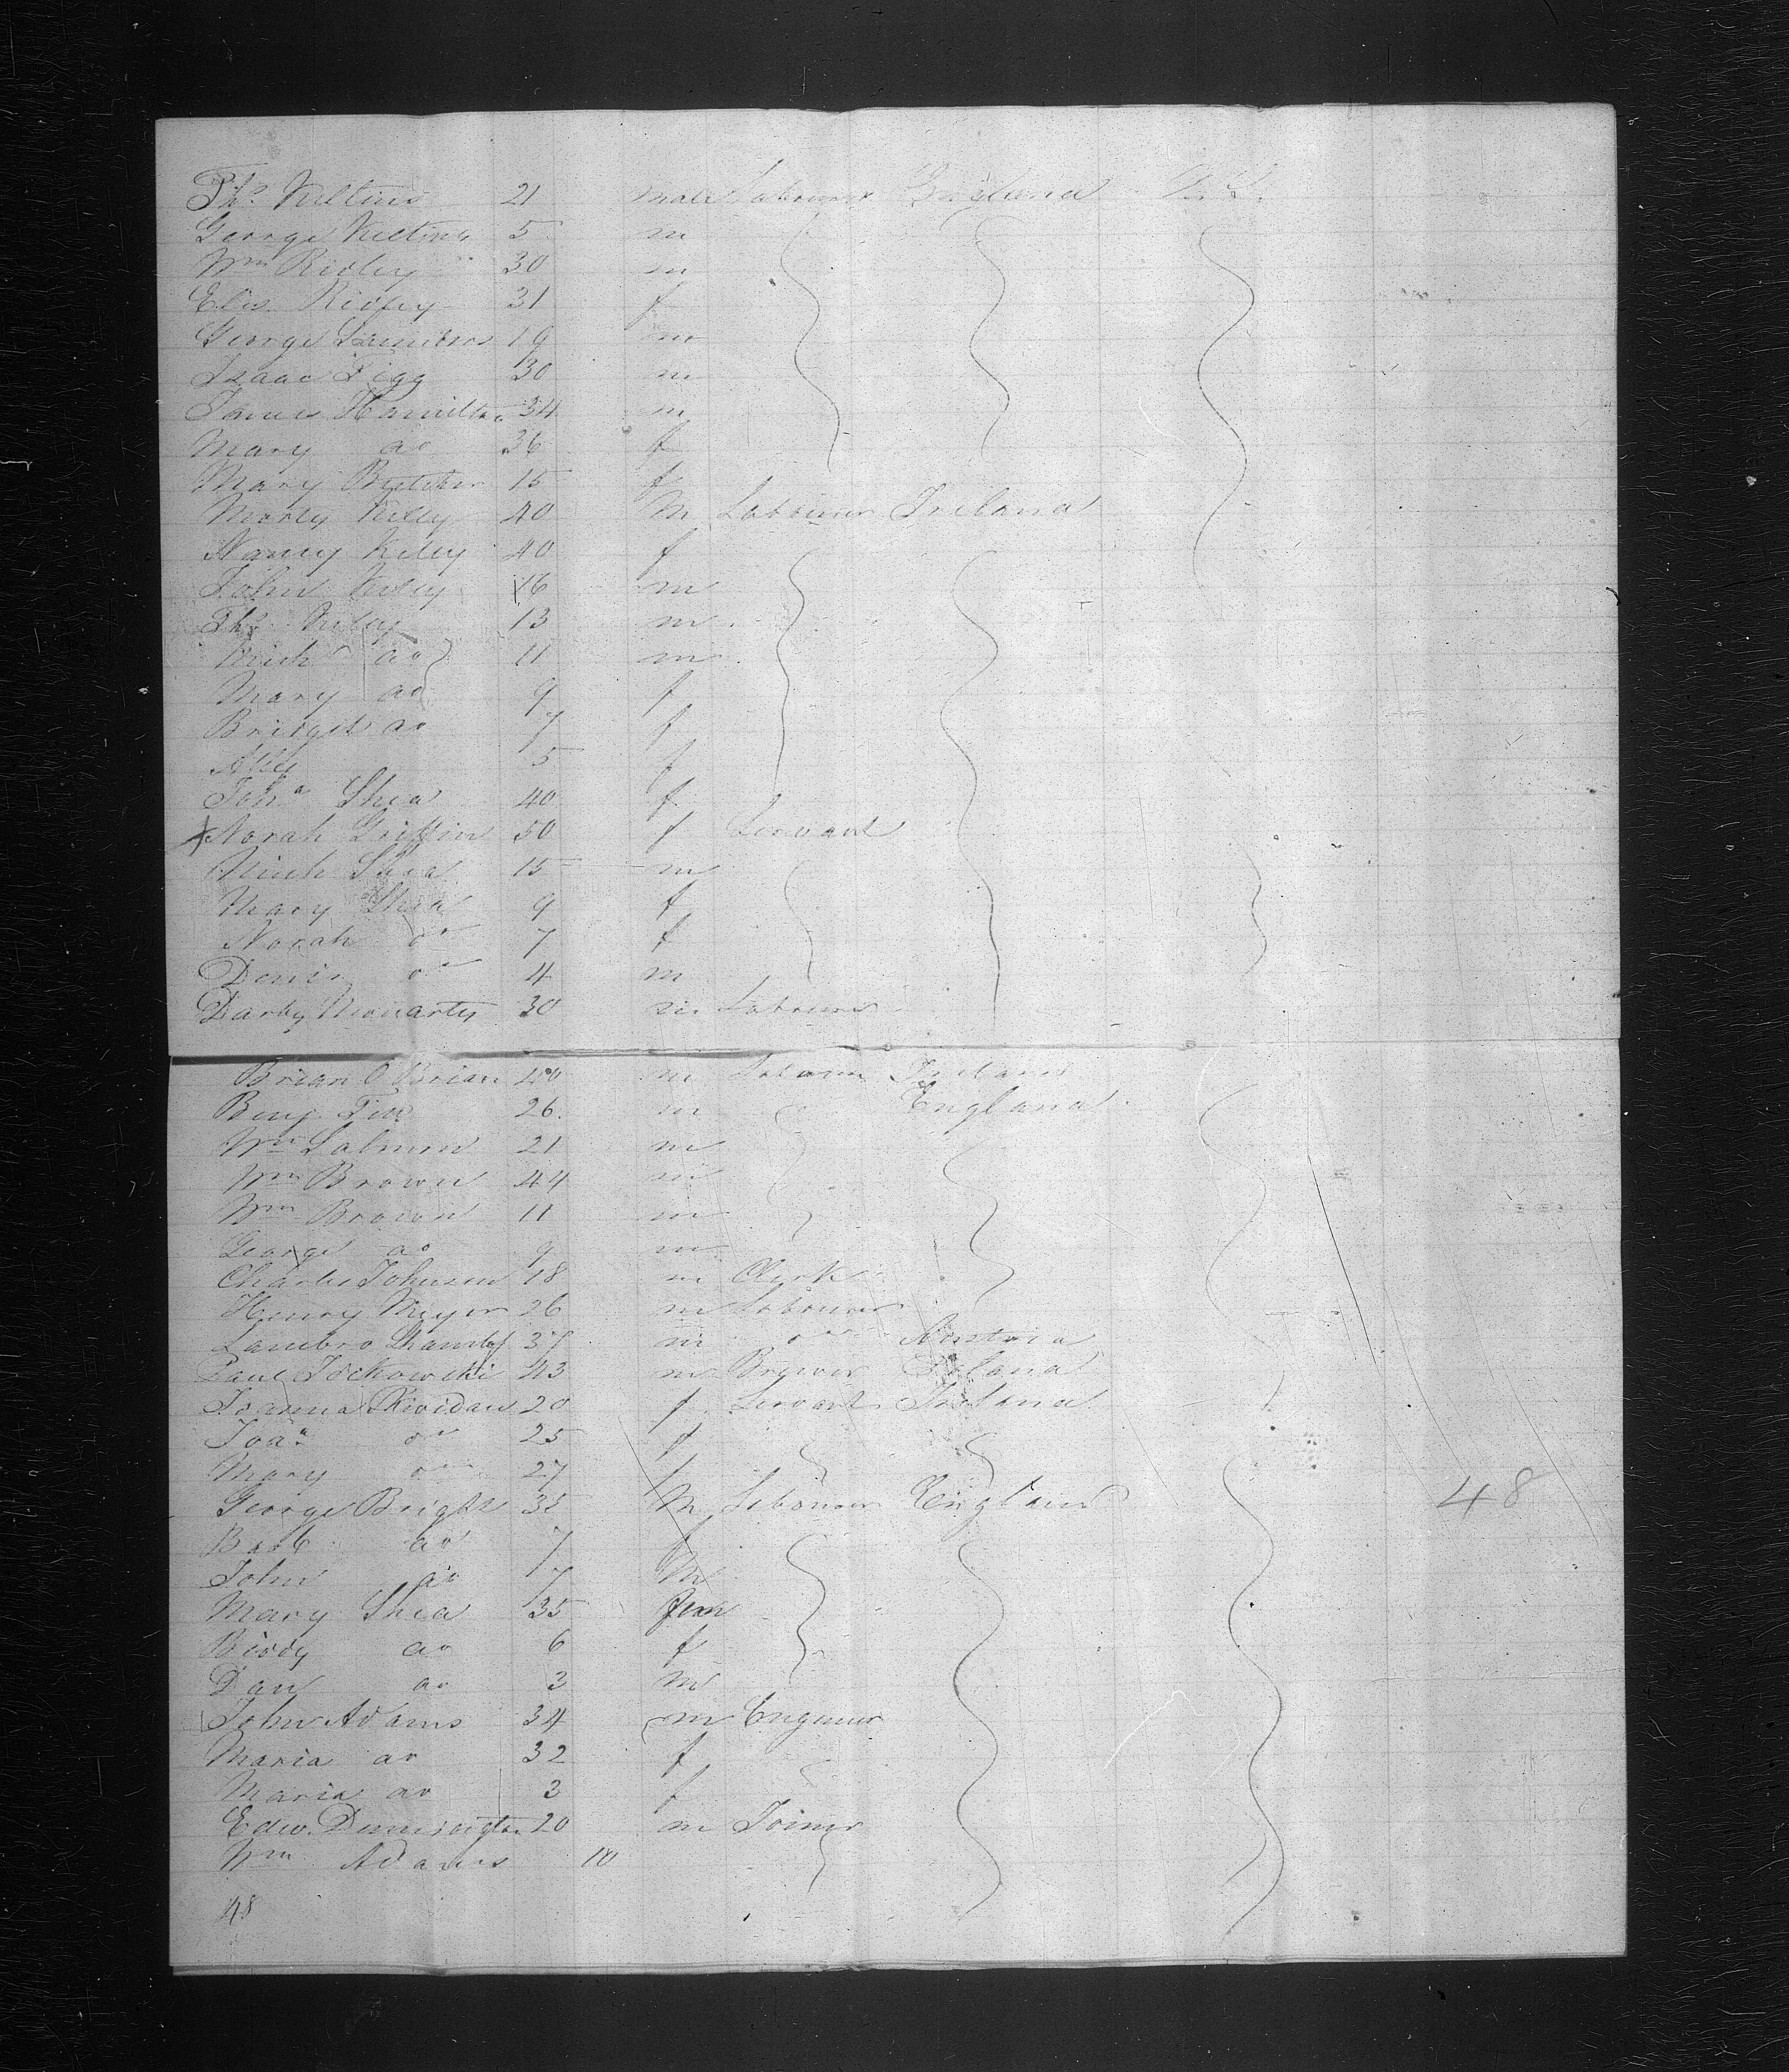 Tho Nelting 21 male Labourer England U.S.
George Nelting 5 m
Wm Ridley 30 m
Eliz. Ridley 31 f
George Saunders 19 m
Isaac Figg 30 m
James Hamilton 34 m
Mary do 36 f
Mary Butcher 15 f
Morty Kelly 40 m Labourer Ireland
Nancy Kelly 40 f
John Kelly 16 m
Tho Kelly 13 m
Mich do 11 m
Mary do 9 f
Bridget do 7 f
Ally 5 f
Joha Shea 40 f
Norah Griffin 50 f Servant
Mich Shea 15 m
Mary Shea 9 f
Norah do 7 f
Denis do 4 m
Darby Moriarty 30 m Labourer
Brian O Brian 40 m Labourer Ireland
Benj. 26 m England
Wm Salmon 21 m
Wm Brown 44 m
Wm Brown 11 m
George do 9 m
Charles Johnson 18 m Clerk
Henry Meyer 26 m Labourer
Lambro 37 m do Austria
Paul 43 m Brewer Poland
Joanna Rividan 20 f Servant Ireland
Joaa do 25 f
Mary do 27 f
George Bright 35 m Labourer England
Barb do 7 f
John do 7 m
Mary Shea 35 fem
Biddy do 6 f
Dan do 3 m
John Adams 34 m Engineer
Maria do 32 f
Maria do 3 f
Edw. Dunnington 20 m Joiner
Wm Adams 10
48
48